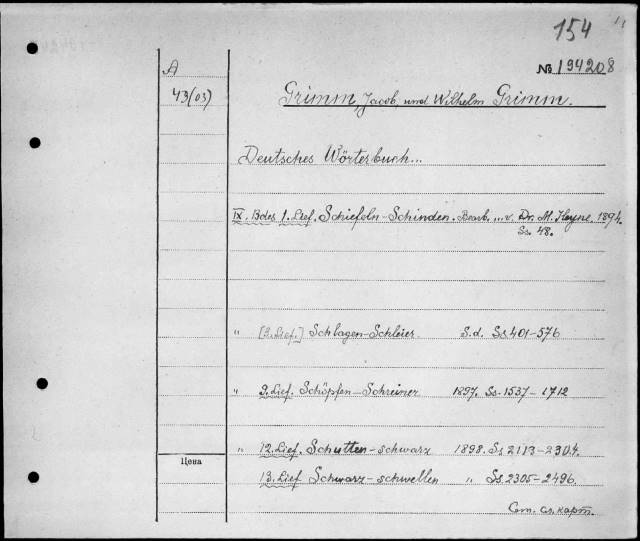 154
№ 194208
A
43(03)
Grimm, Jacob, und Wilhelm Grimm.
Deutsches Wörterbuch...
IX. Bdes 1. Lief. Schiefeln-Schinden. Bearb. ... v. Dr. M. Heyne. 1894.
Ss. 48.
" [3. Lief.] Schlagen-Schleier. S.d. Ss. 401-576
" 9. Lief. Schöpfen-Schreiner 1897. Ss. 1537-1712
" 12. Lief. Schutten-schwarz 1898. Ss. 2113-2304.
Цена
13. Lief Schwarz-schwellen " Ss. 2305-2496.
См. сл. карт.